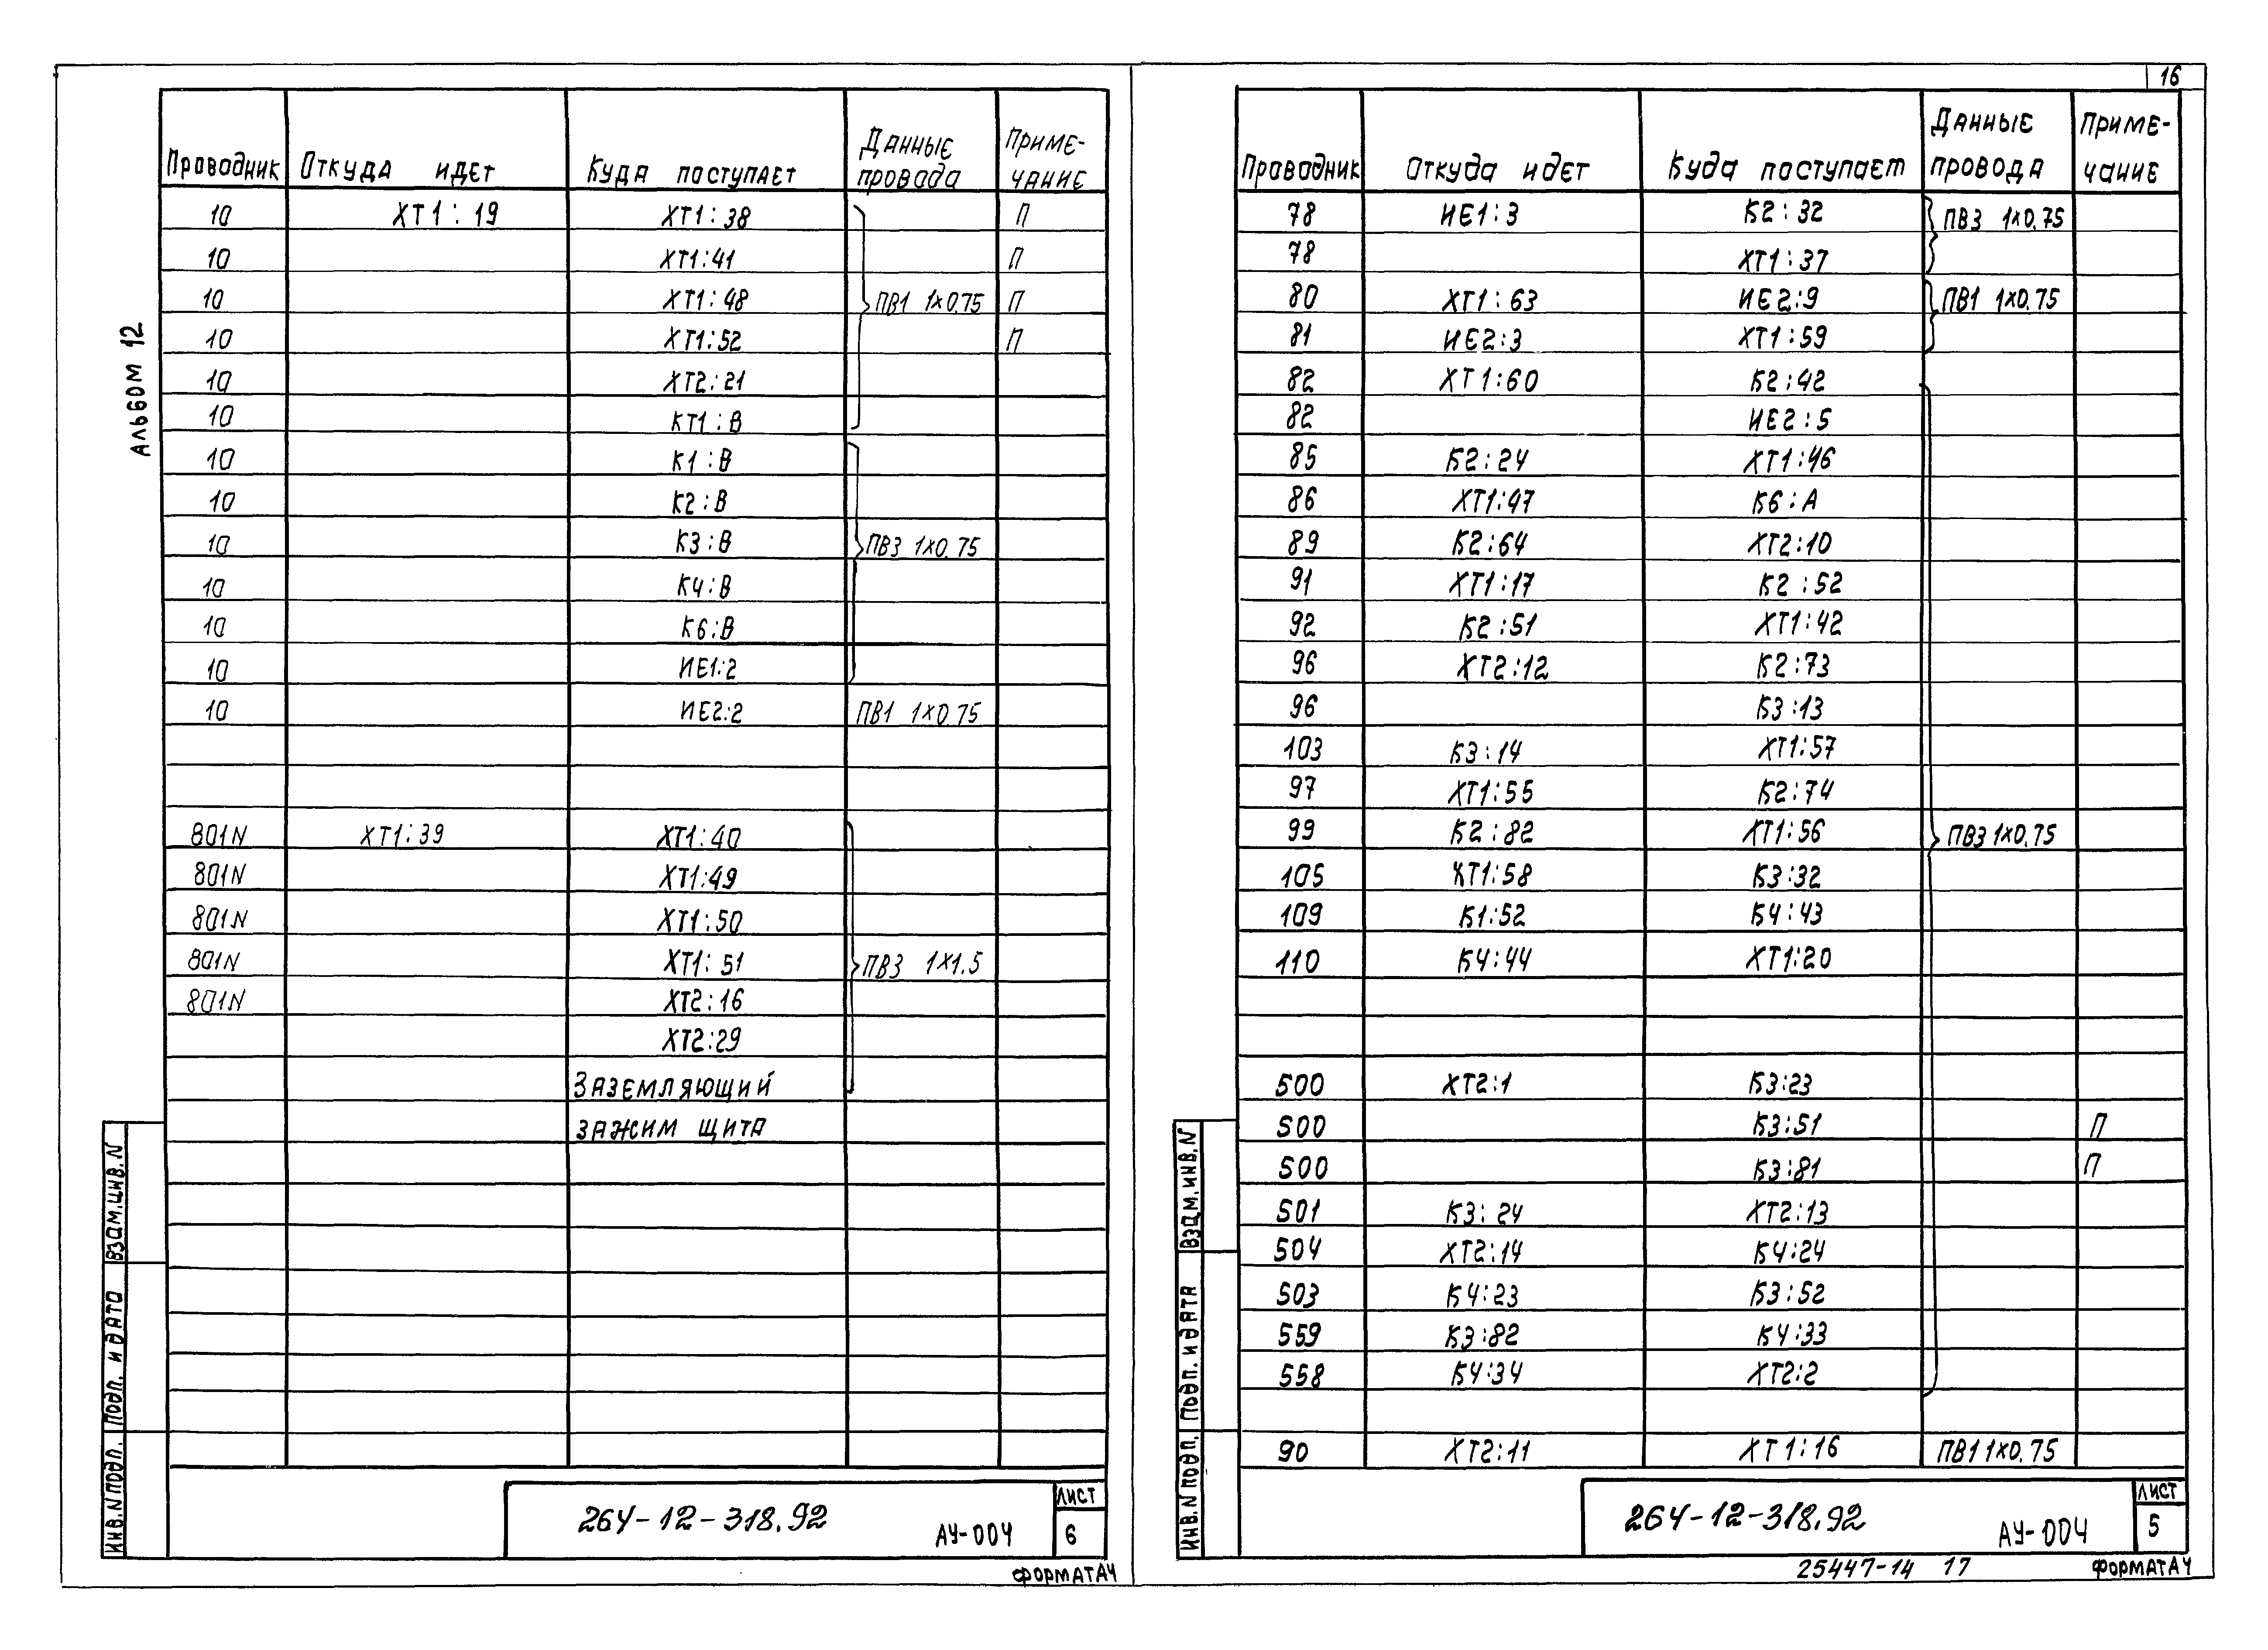 16
Альбом 12
Проводник Откуда идет Куда поступает Данные провода Приме-чание
10 ХТ1:19 ХТ1:38 П
10 ХТ1:41 П
10 ХТ1:48 ПВ1 1х0.75 П
10 ХТ1:52 П
10 ХТ2:21
10 КТ1:В
10 К1:В
10 К2:В
10 К3:В ПВ3 1х0.75
10 К4:В
10 К6:В
10 ИЕ1:2
10 ИЕ2:2 ПВ1 1х0.75
801N ХТ1:39 ХТ1:40
801N ХТ1:49
801N ХТ1:50
801N ХТ1:51 ПВ3 1х1.5
801N ХТ2:16
ХТ2:29
Заземляющий
зажим щита
Взам.инв.N
Подп. и дата
Инв.N подл.
264-12-318.92
АУ-004
Лист
6
Формат А4
Проводник Откуда идет Куда поступает Данные провода Приме-чание
78 ИЕ1:3 К2:32 ПВ3 1х0.75
78 ХТ1:37
80 ХТ1:63 ИЕ2:9 ПВ1 1х0.75
81 ИЕ2:3 ХТ1:59
82 ХТ1:60 К2:42
82 ИЕ2:5
85 К2:24 ХТ1:46
86 ХТ1:47 К6:А
89 К2:64 ХТ2:10
91 ХТ1:17 К2:52
92 К2:51 ХТ1:42
96 ХТ2:12 К2:73
96 К3:13
103 К3:14 ХТ1:57
97 ХТ1:55 К2:74
99 К2:82 ХТ1:56 ПВ3 1х0.75
105 ХТ1:58 К3:32
109 К1:52 К4:43
110 К4:44 ХТ1:20
500 ХТ2:1 К3:23
500 К3:51 П
500 К3:81 П
501 К3:24 ХТ2:13
504 ХТ2:14 К4:24
503 К4:23 К3:52
559 К3:82 К4:33
558 К4:34 ХТ2:2
90 ХТ2:11 ХТ1:16 ПВ1 1х0.75
Взам.инв.N
Подп. и дата
Инв.N подл.
264-12-318.92
АУ-004
Лист
5
25447-14 17
Формат А4